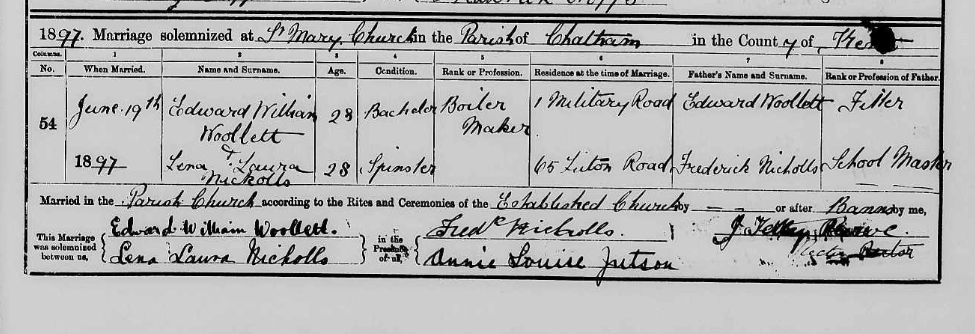 1897. Marriage solemnized at St Mary Church in the Parish of Chatham in the County of Kent
Columns. 1 2 3 4 5 6 7 8
No. When Married. Name and Surname. Age. Condition. Rank or Profession. Residence at the time of Marriage. Father's Name and Surname. Rank or Profession of Father.
54 June 19th Edward William Woollett 28 Bachelor Boiler Maker 1 Military Road Edward Woollett Fitter
1897 Lena Laura Nicholls 28 Spinster 65 Luton Road Frederick Nicholls School Master
Married in the Parish Church according to the Rites and Ceremonies of the Established Church by — — or after Banns by me,
This Marriage was solemnized between us, Edward William Woollett. in the Presence of us, Fredk Nicholls. J
Lena Laura Nicholls Annie Louise Jutson Rector